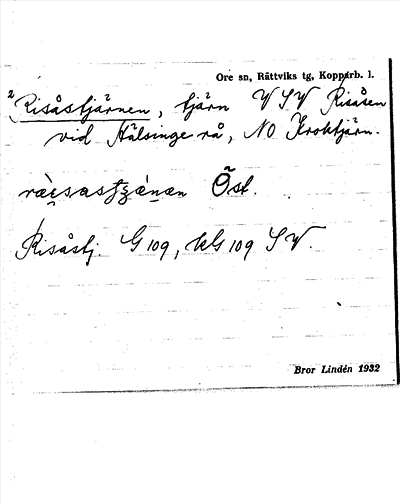 Ore sn, Rättviks tg, Kopparb. l.
2 Risåstjärnen, tjärn VSV Risåsen
vid Hälsinge rå, NO Kroktjärn.
Öst.
Risåstj. G 109, UG 109 SV.
Bror Lindén 1932